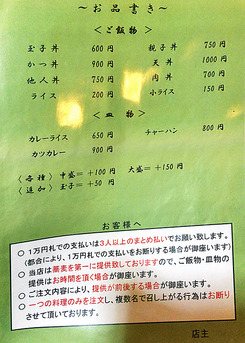 ～お品書き～
＜ご飯物＞
玉子丼 600円 親子丼 750円
かつ丼 900円 天丼 1000円
他人丼 750円 肉丼 700円
ライス 200円 小ライス 150円
＜皿物＞
カレーライス 650円 チャーハン 800円
カツカレー 900円
〈各種〉 中盛＝＋100円 大盛＝＋150円
〈追加〉 玉子＝＋50円
お客様へ
○１万円札での支払いは3人以上のまとめ払いでお願い致します。
（都合により、１万円札での支払いをお断りする場合が御座います）
○当店は蕎麦を第一に提供致しておりますので、ご飯物・皿物の
提供はお時間を頂く場合が御座います。
○ご注文内容により、提供が前後する場合が御座います。
○一つの料理のみを注文し、複数名で召し上がる行為はお断り
させて頂いております。
店主